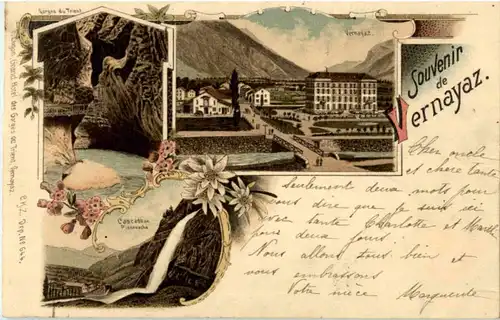 Gorges du Trient
Vernayaz.
Souvenir
de
Vernayaz.
Cascade de
Pissevache
Cher oncle
et chère tante
Seulement deux mots pour
vous dire que je suis ici
avec tante Charlotte et Marthe
pour deux jours.
Nous allons tous bien et
vous embrassons
Votre nièce Marguerite